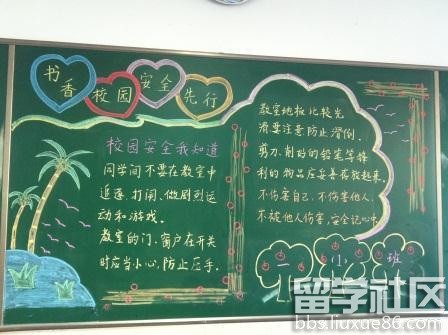 书香校园安全先行
校园安全我知道
同学间不要在教室中
追逐、打闹、做剧烈运
动和游戏。
教室的门、窗户在开关
时应当小心,防止压手。
教室地板比较光
滑要注意防止滑倒.
剪刀、削好的铅笔等锋
利的物品应妥善存放起来.
不伤害自己,不伤害他人,
不被他人伤害,安全记心中.
一(1)班
留学社区
bbs.liuxue86.com